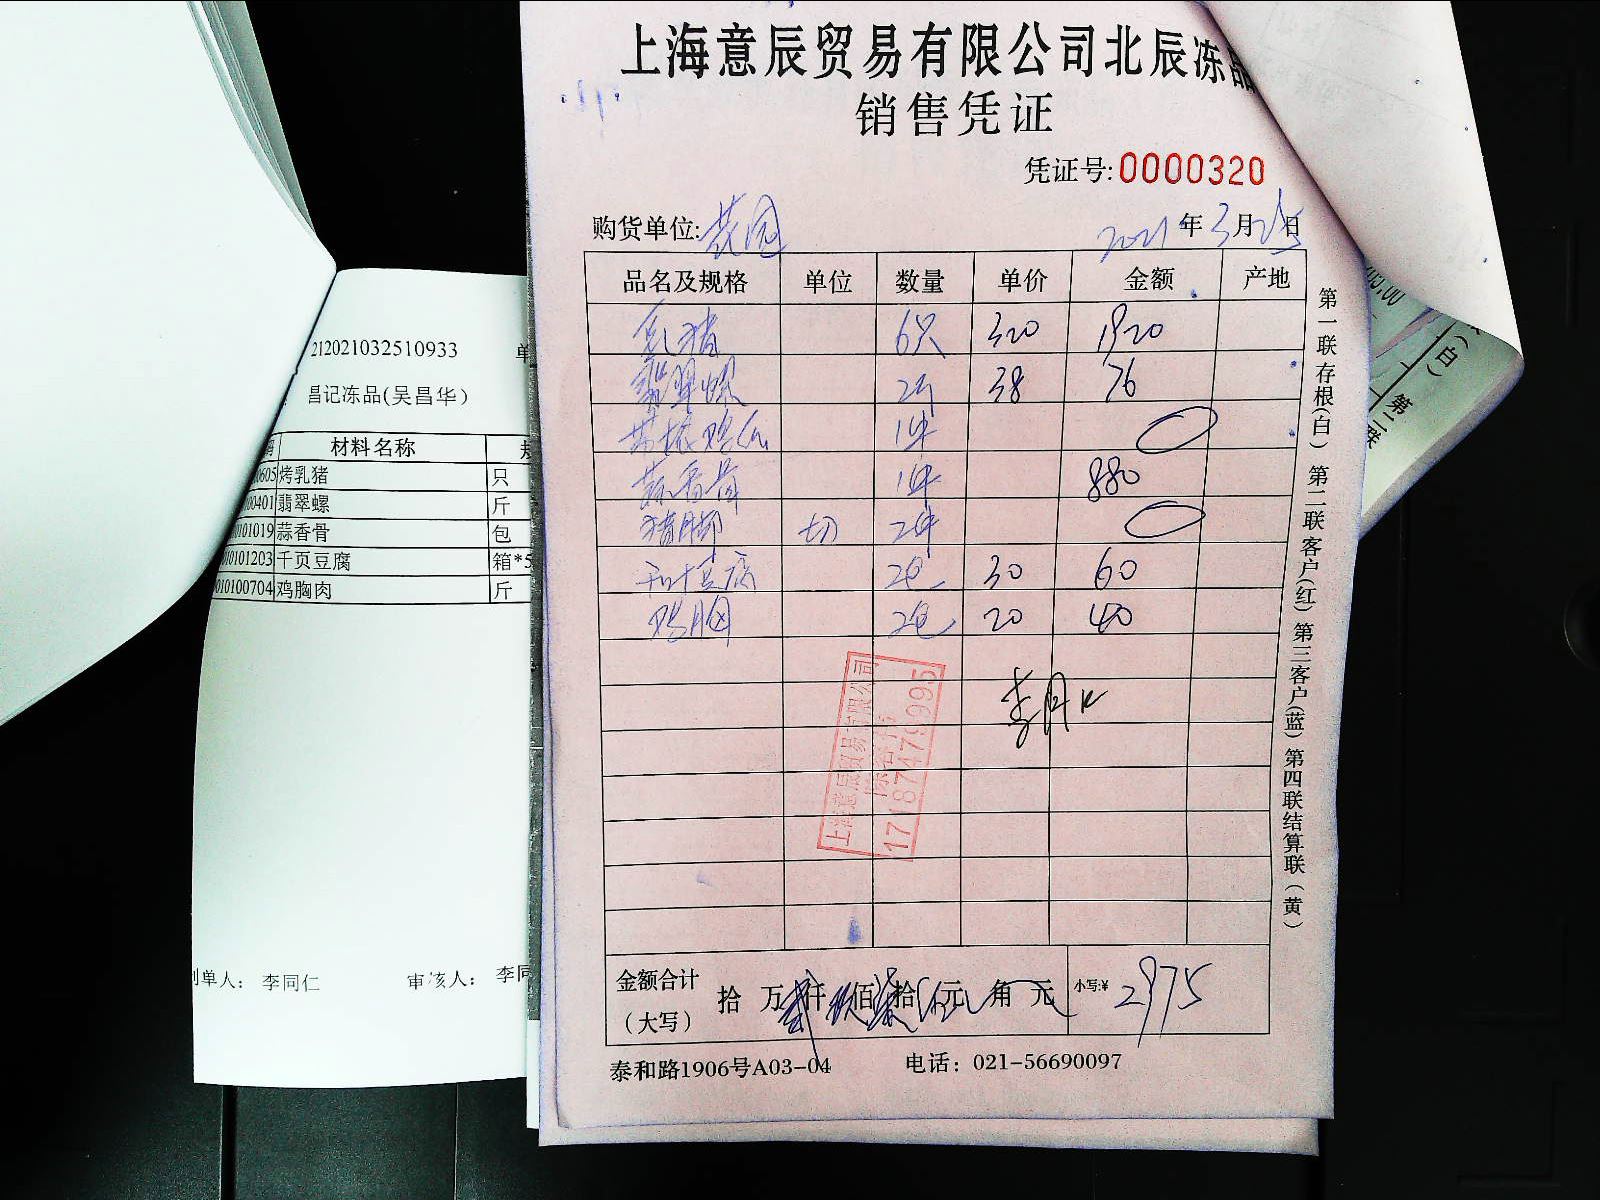 上海意辰贸易有限公司北辰冻品
销售凭证
凭证号:0000320
购货单位: 花园 2021年3月25日
品名及规格 单位 数量 单价 金额 产地
乳猪 6只 320 1920
翡翠螺 2斤 38 76
1件
蒜香骨 1件 880
猪脚 切 2件
千叶豆腐 2包 30 60
鸡胸 2包 20 40
上海意辰贸易有限公司
17187479995
金额合计（大写） 拾 万 仟 佰 拾 元 角 元 小写:¥ 2975
泰和路1906号A03-04 电话：021-56690097
第一联存根(白) 第二联客户(红) 第三客户(蓝) 第四联结算联(黄)
212021032510933 单
昌记冻品(吴昌华)
材料名称
0605 烤乳猪 只
00401 翡翠螺 斤
0101019 蒜香骨 包
0101203 千页豆腐 箱*5
010100704 鸡胸肉 斤
制单人： 李同仁 审核人： 李同
(白)
第二联